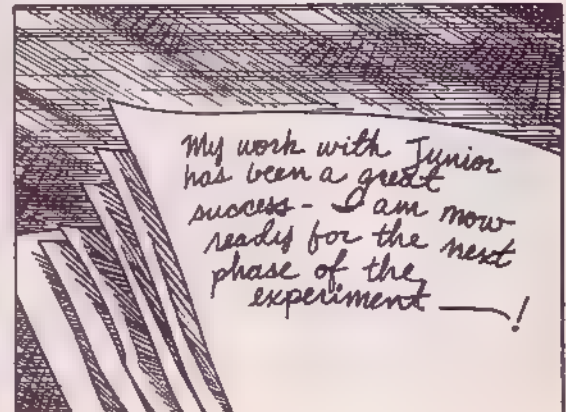 My work with Junior
has been a great
success - I am now
ready for the next
phase of the
experiment —!